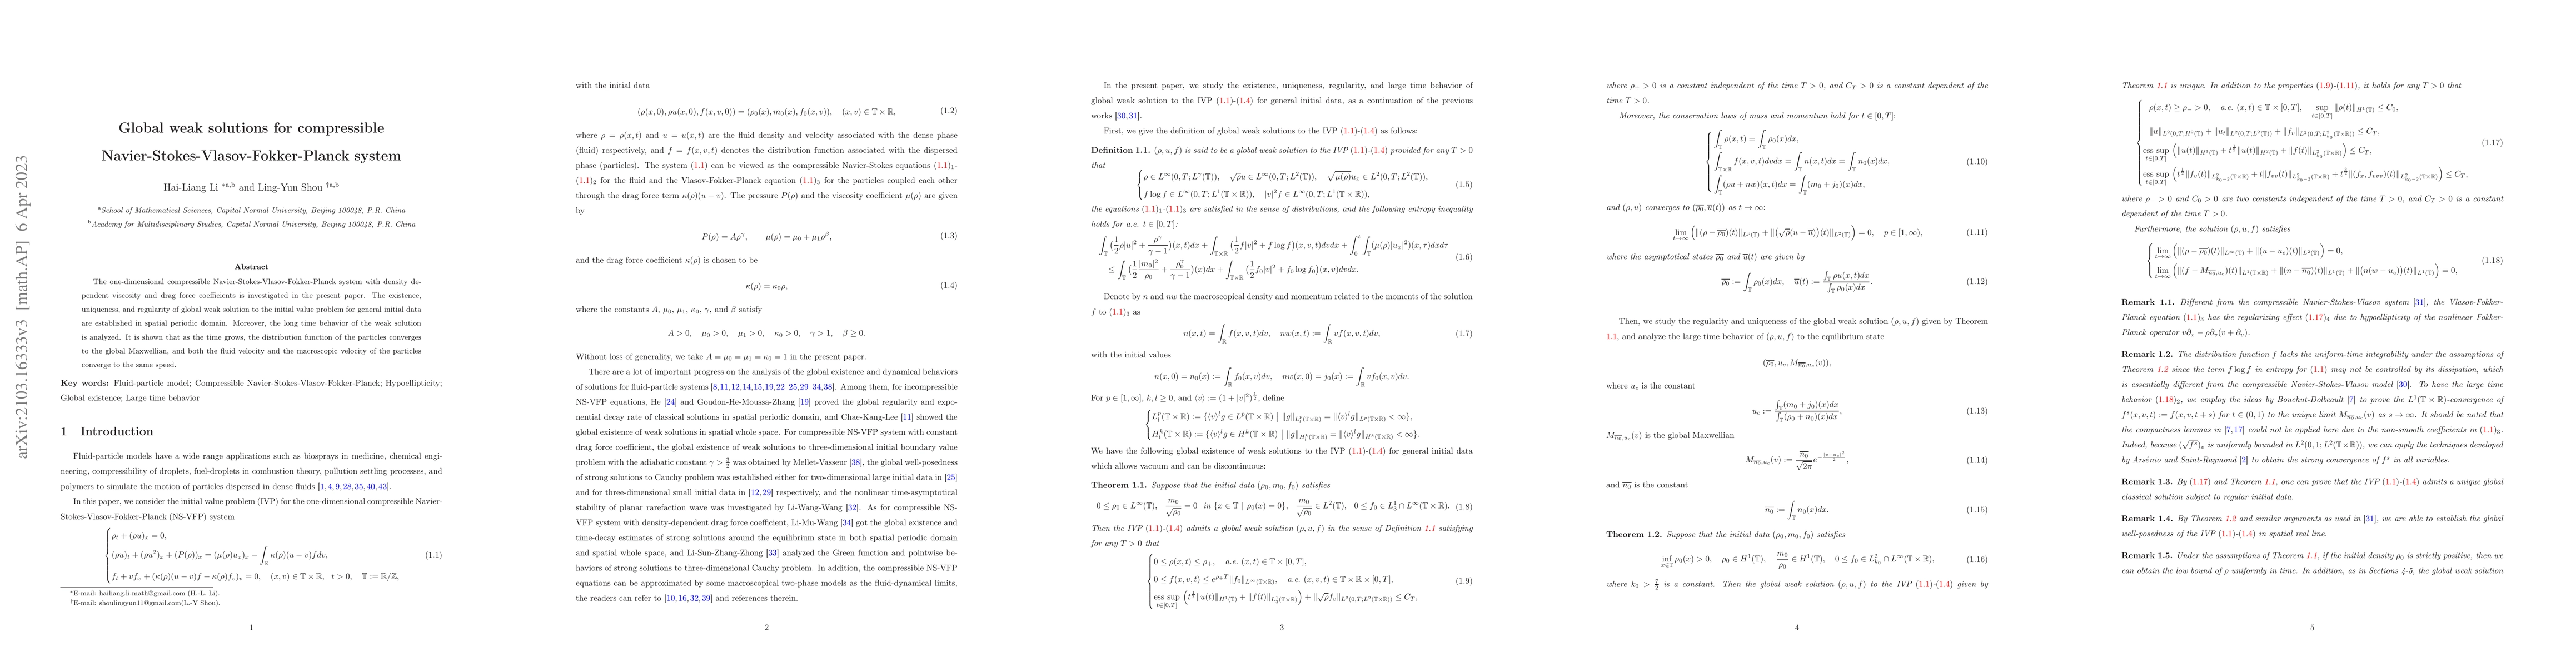 arXiv:2103.16333v3 [math.AP] 6 Apr 2023
Global weak solutions for compressible
Navier-Stokes-Vlasov-Fokker-Planck system
Hai-Liang Li *a,b and Ling-Yun Shou †a,b
aSchool of Mathematical Sciences, Capital Normal University, Beijing 100048, P.R. China
bAcademy for Multidisciplinary Studies, Capital Normal University, Beijing 100048, P.R. China
Abstract
The one-dimensional compressible Navier-Stokes-Vlasov-Fokker-Planck system with density de-
pendent viscosity and drag force coefficients is investigated in the present paper. The existence,
uniqueness, and regularity of global weak solution to the initial value problem for general initial data
are established in spatial periodic domain. Moreover, the long time behavior of the weak solution
is analyzed. It is shown that as the time grows, the distribution function of the particles converges
to the global Maxwellian, and both the fluid velocity and the macroscopic velocity of the particles
converge to the same speed.
Key words: Fluid-particle model; Compressible Navier-Stokes-Vlasov-Fokker-Planck; Hypoellipticity;
Global existence; Large time behavior
1 Introduction
Fluid-particle models have a wide range applications such as biosprays in medicine, chemical engi-
neering, compressibility of droplets, fuel-droplets in combustion theory, pollution settling processes, and
polymers to simulate the motion of particles dispersed in dense fluids [1,4,9,28,35,40,43].
In this paper, we consider the initial value problem (IVP) for the one-dimensional compressible Navier-
Stokes-Vlasov-Fokker-Planck (NS-VFP) system
ρt + (ρu)x = 0,
(ρu)t + (ρu²)x + (P(ρ))x = (μ(ρ)ux)x − ∫ℝ κ(ρ)(u − v)fdv, (1.1)
ft + vfx + (κ(ρ)(u − v)f − κ(ρ)fv)v = 0, (x, v) ∈ 𝕋 × ℝ, t > 0, 𝕋 := ℝ/ℤ,
*E-mail: hailiang.li.math@gmail.com (H.-L. Li).
†E-mail: shoulingyun11@gmail.com(L.-Y Shou).
1
with the initial data
(ρ(x, 0), ρu(x, 0), f(x, v, 0)) = (ρ0(x), m0(x), f0(x, v)), (x, v) ∈ 𝕋 × ℝ, (1.2)
where ρ = ρ(x, t) and u = u(x, t) are the fluid density and velocity associated with the dense phase
(fluid) respectively, and f = f(x, v, t) denotes the distribution function associated with the dispersed
phase (particles). The system (1.1) can be viewed as the compressible Navier-Stokes equations (1.1)1-
(1.1)2 for the fluid and the Vlasov-Fokker-Planck equation (1.1)3 for the particles coupled each other
through the drag force term κ(ρ)(u − v). The pressure P(ρ) and the viscosity coefficient μ(ρ) are given
by
P(ρ) = Aρ^γ, μ(ρ) = μ0 + μ1ρ^β, (1.3)
and the drag force coefficient κ(ρ) is chosen to be
κ(ρ) = κ0ρ, (1.4)
where the constants A, μ0, μ1, κ0, γ, and β satisfy
A > 0, μ0 > 0, μ1 > 0, κ0 > 0, γ > 1, β ≥ 0.
Without loss of generality, we take A = μ0 = μ1 = κ0 = 1 in the present paper.
There are a lot of important progress on the analysis of the global existence and dynamical behaviors
of solutions for fluid-particle systems [8,11,12,14,15,19,22–25,29–34,38]. Among them, for incompressible
NS-VFP equations, He [24] and Goudon-He-Moussa-Zhang [19] proved the global regularity and expo-
nential decay rate of classical solutions in spatial periodic domain, and Chae-Kang-Lee [11] showed the
global existence of weak solutions in spatial whole space. For compressible NS-VFP system with constant
drag force coefficient, the global existence of weak solutions to three-dimensional initial boundary value
problem with the adiabatic constant γ > 3/2 was obtained by Mellet-Vasseur [38], the global well-posedness
of strong solutions to Cauchy problem was established either for two-dimensional large initial data in [25]
and for three-dimensional small initial data in [12,29] respectively, and the nonlinear time-asymptotical
stability of planar rarefaction wave was investigated by Li-Wang-Wang [32]. As for compressible NS-
VFP system with density-dependent drag force coefficient, Li-Mu-Wang [34] got the global existence and
time-decay estimates of strong solutions around the equilibrium state in both spatial periodic domain
and spatial whole space, and Li-Sun-Zhang-Zhong [33] analyzed the Green function and pointwise be-
haviors of strong solutions to three-dimensional Cauchy problem. In addition, the compressible NS-VFP
equations can be approximated by some macroscopical two-phase models as the fluid-dynamical limits,
the readers can refer to [10,16,32,39] and references therein.
2
In the present paper, we study the existence, uniqueness, regularity, and large time behavior of
global weak solution to the IVP (1.1)-(1.4) for general initial data, as a continuation of the previous
works [30,31].
First, we give the definition of global weak solutions to the IVP (1.1)-(1.4) as follows:
Definition 1.1. (ρ, u, f) is said to be a global weak solution to the IVP (1.1)-(1.4) provided for any T > 0
that
ρ ∈ L^∞(0, T; L^γ(𝕋)), √ρu ∈ L^∞(0, T; L²(𝕋)), √μ(ρ)ux ∈ L²(0, T; L²(𝕋)),
f log f ∈ L^∞(0, T; L¹(𝕋 × ℝ)), |v|²f ∈ L^∞(0, T; L¹(𝕋 × ℝ)), (1.5)
the equations (1.1)1-(1.1)3 are satisfied in the sense of distributions, and the following entropy inequality
holds for a.e. t ∈ [0, T]:
∫𝕋 (1/2 ρ|u|² + ρ^γ/(γ − 1))(x, t)dx + ∫𝕋×ℝ (1/2 f|v|² + f log f)(x, v, t)dvdx + ∫0^t ∫𝕋 (μ(ρ)|ux|²)(x, τ)dxdτ
≤ ∫𝕋 (1/2 |m0|²/ρ0 + ρ0^γ/(γ − 1))(x)dx + ∫𝕋×ℝ (1/2 f0|v|² + f0 log f0)(x, v)dvdx. (1.6)
Denote by n and nw the macroscopical density and momentum related to the moments of the solution
f to (1.1)3 as
n(x, t) = ∫ℝ f(x, v, t)dv, nw(x, t) := ∫ℝ vf(x, v, t)dv, (1.7)
with the initial values
n(x, 0) = n0(x) := ∫ℝ f0(x, v)dv, nw(x, 0) = j0(x) := ∫ℝ vf0(x, v)dv.
For p ∈ [1, ∞], k, l ≥ 0, and ⟨v⟩ := (1 + |v|²)^{1/2}, define
L^p_l(𝕋 × ℝ) := {⟨v⟩^l g ∈ L^p(𝕋 × ℝ) | ‖g‖_{L^p_l(𝕋×ℝ)} = ‖⟨v⟩^l g‖_{L^p(𝕋×ℝ)} < ∞},
H^k_l(𝕋 × ℝ) := {⟨v⟩^l g ∈ H^k(𝕋 × ℝ) | ‖g‖_{H^k_l(𝕋×ℝ)} = ‖⟨v⟩^l g‖_{H^k(𝕋×ℝ)} < ∞}.
We have the following global existence of weak solutions to the IVP (1.1)-(1.4) for general initial data
which allows vacuum and can be discontinuous:
Theorem 1.1. Suppose that the initial data (ρ0, m0, f0) satisfies
0 ≤ ρ0 ∈ L^∞(𝕋), m0/√ρ0 = 0 in {x ∈ 𝕋 | ρ0(x) = 0}, m0/√ρ0 ∈ L²(𝕋), 0 ≤ f0 ∈ L¹_3 ∩ L^∞(𝕋 × ℝ). (1.8)
Then the IVP (1.1)-(1.4) admits a global weak solution (ρ, u, f) in the sense of Definition 1.1 satisfying
for any T > 0 that
0 ≤ ρ(x, t) ≤ ρ+, a.e. (x, t) ∈ 𝕋 × [0, T],
0 ≤ f(x, v, t) ≤ e^{ρ+T}‖f0‖_{L^∞(𝕋×ℝ)}, a.e. (x, v, t) ∈ 𝕋 × ℝ × [0, T], (1.9)
ess sup_{t∈[0,T]} (t^{1/2}‖u(t)‖_{H¹(𝕋)} + ‖f(t)‖_{L¹_3(𝕋×ℝ)}) + ‖√ρfv‖_{L²(0,T;L²(𝕋×ℝ))} ≤ C_T,
3
where ρ+ > 0 is a constant independent of the time T > 0, and C_T > 0 is a constant dependent of the
time T > 0.
Moreover, the conservation laws of mass and momentum hold for t ∈ [0, T]:
∫𝕋 ρ(x, t) = ∫𝕋 ρ0(x)dx,
∫𝕋×ℝ f(x, v, t)dvdx = ∫𝕋 n(x, t)dx = ∫𝕋 n0(x)dx, (1.10)
∫𝕋 (ρu + nw)(x, t)dx = ∫𝕋 (m0 + j0)(x)dx,
and (ρ, u) converges to (ρ̄0, ū(t)) as t → ∞:
lim_{t→∞} (‖(ρ − ρ̄0)(t)‖_{L^p(𝕋)} + ‖(√ρ(u − ū))(t)‖_{L²(𝕋)}) = 0, p ∈ [1, ∞), (1.11)
where the asymptotical states ρ̄0 and ū(t) are given by
ρ̄0 := ∫𝕋 ρ0(x)dx, ū(t) := ∫𝕋 ρu(x, t)dx / ∫𝕋 ρ0(x)dx. (1.12)
Then, we study the regularity and uniqueness of the global weak solution (ρ, u, f) given by Theorem
1.1, and analyze the large time behavior of (ρ, u, f) to the equilibrium state
(ρ̄0, uc, M_{n̄0,uc}(v)),
where uc is the constant
uc := ∫𝕋 (m0 + j0)(x)dx / ∫𝕋 (ρ0 + n0)(x)dx, (1.13)
M_{n̄0,uc}(v) is the global Maxwellian
M_{n̄0,uc}(v) := n̄0/√2π e^{−|v−uc|²/2}, (1.14)
and n̄0 is the constant
n̄0 := ∫𝕋 n0(x)dx. (1.15)
Theorem 1.2. Suppose that the initial data (ρ0, m0, f0) satisfies
inf_{x∈𝕋} ρ0(x) > 0, ρ0 ∈ H¹(𝕋), m0/ρ0 ∈ H¹(𝕋), 0 ≤ f0 ∈ L²_{k0} ∩ L^∞(𝕋 × ℝ), (1.16)
where k0 > 7/2 is a constant. Then the global weak solution (ρ, u, f) to the IVP (1.1)-(1.4) given by
4
Theorem 1.1 is unique. In addition to the properties (1.9)-(1.11), it holds for any T > 0 that
ρ(x, t) ≥ ρ− > 0, a.e. (x, t) ∈ 𝕋 × [0, T], sup_{t∈[0,T]} ‖ρ(t)‖_{H¹(𝕋)} ≤ C0,
‖u‖_{L²(0,T;H²(𝕋))} + ‖ut‖_{L²(0,T;L²(𝕋))} + ‖fv‖_{L²(0,T;L²_{k0}(𝕋×ℝ))} ≤ C_T,
ess sup_{t∈[0,T]} (‖u(t)‖_{H¹(𝕋)} + t^{1/2}‖u(t)‖_{H²(𝕋)} + ‖f(t)‖_{L²_{k0}(𝕋×ℝ)}) ≤ C_T, (1.17)
ess sup_{t∈[0,T]} (t^{1/2}‖fv(t)‖_{L²_{k0−2}(𝕋×ℝ)} + t‖fvv(t)‖_{L²_{k0−2}(𝕋×ℝ)} + t^{3/2}‖(fx, fvvv)(t)‖_{L²_{k0−2}(𝕋×ℝ)}) ≤ C_T,
where ρ− > 0 and C0 > 0 are two constants independent of the time T > 0, and C_T > 0 is a constant
dependent of the time T > 0.
Furthermore, the solution (ρ, u, f) satisfies
lim_{t→∞} (‖(ρ − ρ̄0)(t)‖_{L^∞(𝕋)} + ‖(u − uc)(t)‖_{L²(𝕋)}) = 0,
lim_{t→∞} (‖(f − M_{n̄0,uc})(t)‖_{L¹(𝕋×ℝ)} + ‖(n − n̄0)(t)‖_{L¹(𝕋)} + ‖(n(w − uc))(t)‖_{L¹(𝕋)}) = 0, (1.18)
Remark 1.1. Different from the compressible Navier-Stokes-Vlasov system [31], the Vlasov-Fokker-
Planck equation (1.1)3 has the regularizing effect (1.17)4 due to hypoellipticity of the nonlinear Fokker-
Planck operator v∂x − ρ∂v(v + ∂v).
Remark 1.2. The distribution function f lacks the uniform-time integrability under the assumptions of
Theorem 1.2 since the term f log f in entropy for (1.1) may not be controlled by its dissipation, which
is essentially different from the compressible Navier-Stokes-Vlasov model [30]. To have the large time
behavior (1.18)2, we employ the ideas by Bouchut-Dolbeault [7] to prove the L¹(𝕋 × ℝ)-convergence of
f^s(x, v, t) := f(x, v, t + s) for t ∈ (0, 1) to the unique limit M_{n̄0,uc}(v) as s → ∞. It should be noted
that the compactness lemmas in [7,17] could not be applied here due to the non-smooth coefficients in (1.1)3.
Indeed, because (√f^s)v is uniformly bounded in L²(0, 1; L²(𝕋 × ℝ)), we can apply the techniques developed
by Arsénio and Saint-Raymond [2] to obtain the strong convergence of f^s in all variables.
Remark 1.3. By (1.17) and Theorem 1.1, one can prove that the IVP (1.1)-(1.4) admits a unique global
classical solution subject to regular initial data.
Remark 1.4. By Theorem 1.2 and similar arguments as used in [31], we are able to establish the global
well-posedness of the IVP (1.1)-(1.4) in spatial real line.
Remark 1.5. Under the assumptions of Theorem 1.1, if the initial density ρ0 is strictly positive, then we
can obtain the low bound of ρ uniformly in time. In addition, as in Sections 4-5, the global weak solution
5